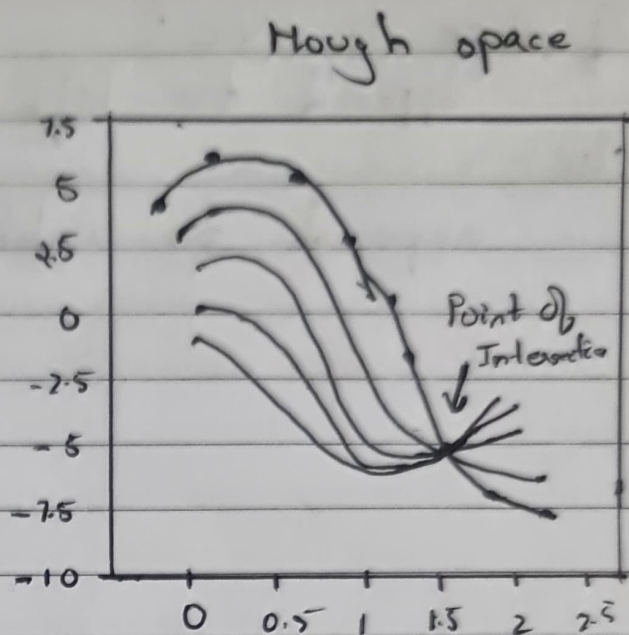 Hough space
7.5
5
2.5
0
-2.5
-5
-7.5
-10
Point of
Intersection
0 0.5 1 1.5 2 2.5